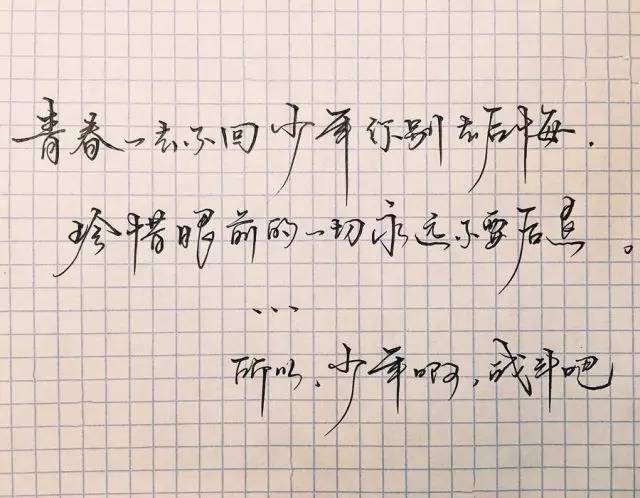 青春一去不回少年你别去后悔.
珍惜眼前的一切永远不要后退。
...
所以,少年啊,战斗吧